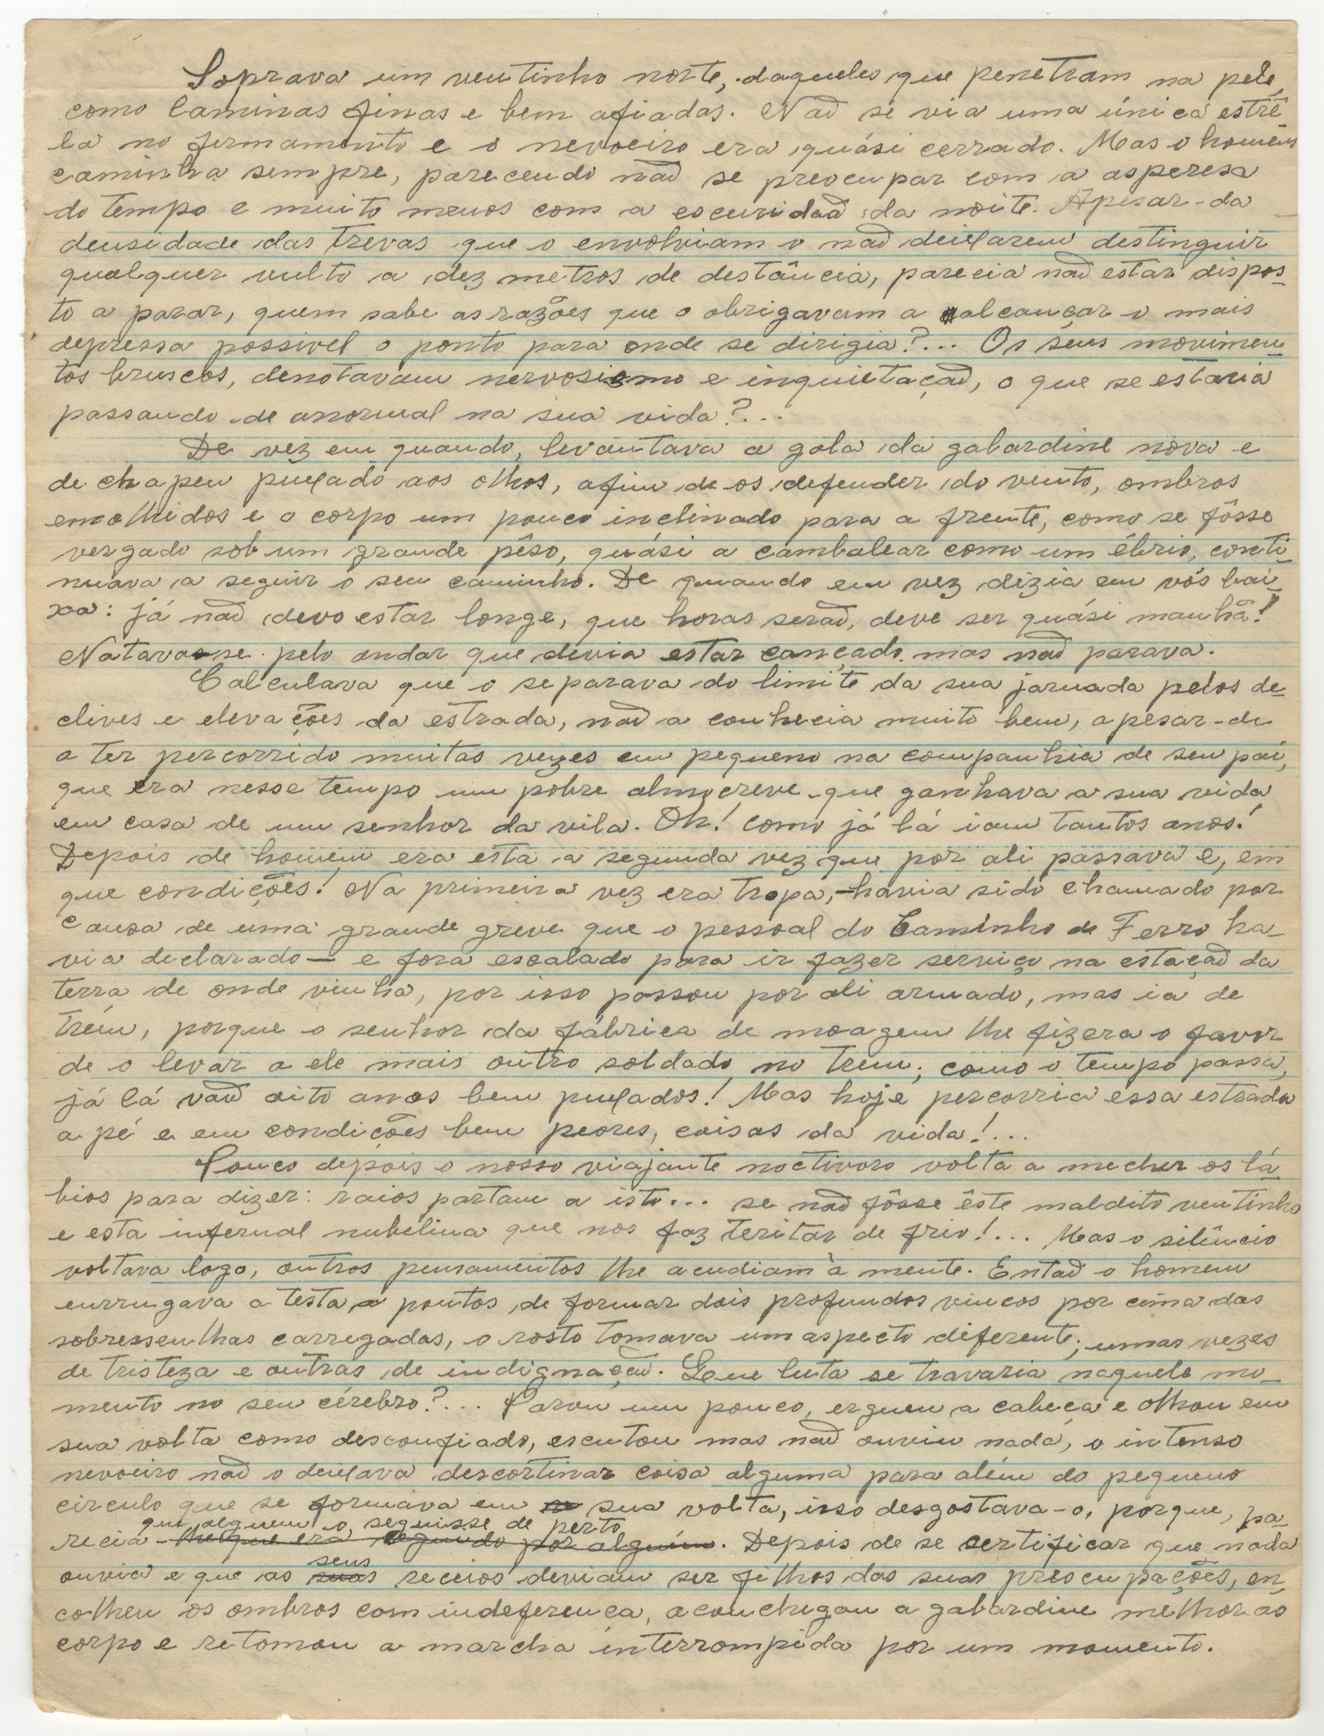 Soprava um ventinho norte, daqueles que penetram na pele
como laminas finas e bem afiadas. Não se via uma única estrê-
la no firmamento e o nevoeiro era quási cerrado. Mas o homem
caminha sempre, parecendo não se preocupar com a asperesa
do tempo e muito menos com a escuridão da noite. Apesar-da
densidade das trevas que o envolviam o não deixarem destinguir
qualquer vulto a dez metros de destância, parecia não estar dispos-
to a parar, quem sabe as razões que o obrigavam a alcançar o mais
depressa possivel o ponto para onde se dirigia?... Os seus movimen-
tos bruscos, denotavam nervosismo e inquietação, o que se estaria
passando de anormal na sua vida?...
De vez em quando, levantava a gola da gabardine nova e
de chapeu puxado aos olhos, afim de os defender do vento, ombros
encolhidos e o corpo um pouco inclinado para a frente, como se fôsse
vergado sob um grande pêso, quási a cambalear como um ébrio, conti-
nuava a seguir o seu caminho. De quando em vez dizia em vós bai-
xa: já não devo estar longe, que horas serão, deve ser quási manhã!
Notava-se pelo andar que devia estar cançado mas não parava.
Calculava que o separava do limite da sua jornada pelos de-
clives e elevações da estrada, não a conhecia muito bem, apesar-de
a ter percorrido muitas vezes em pequeno na companhia de seu pai,
que era nesse tempo um pobre almocreve que ganhava a sua vida
em casa de um senhor da vila. Oh! como já lá iam tantos anos!
Depois de homem era esta a segunda vez que por ali passava e, em
que condições! Na primeira vez era tropa,-havia sido chamado por
causa de uma grande greve que o pessoal do Caminho de Ferro ha-
via declarado- e fora escalado para ir fazer serviço na estação da
terra de onde vinha, por isso passou por ali armado, mas ia de
trem, porque o senhor da fábrica de moagem lhe fizera o favor
de o levar a ele mais outro soldado no trem; como o tempo passa,
já lá vão oito anos bem puxados! Mas hoje percorria essa estrada
a pé e em condições bem peores, coisas da vida!...
Pouco depois o nosso viajante noctivoro volta a mecher os lá-
bios para dizer: raios partam a isto... se não fôsse êste maldito ventinho
e esta infernal nubelina que nos faz teritar de frio!... Mas o silêncio
voltava logo, outros pensamentos lhe acudiam à mente. Então o homem
enrrugava a testa a pontos de formar dois profundos vincos por cima das
sobressenlhas carregadas, o rosto tomava um aspecto diferente; umas vezes
de tristeza e outras de indignação. Que luta se travaria naquele mo-
mento no seu cérebro?... Parou um pouco, ergueu a cabeça e olhou em
sua volta como desconfiado, escutou mas não ouviu nada, o intenso
nevoeiro não o deixava descortinar coisa alguma para além do pequeno
circulo que se formava em sua volta, isso desgostava-o, porque, pa-
que alguem o seguisse de perto
recia-lhe que era seguido por alguém. Depois de se certificar que nada
seus
ouvia e que os suas receios deviam ser filhos das suas preocupações, en-
colheu os ombros com indeferença, aconchegou a gabardine melhor ao
corpo e retomou a marcha interrompida por um momento.